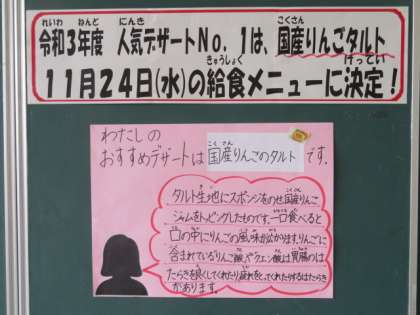 令和3年度 人気デザートNo.1は、国産りんごタルト
11月24日(水)の給食メニューに決定！
わたしの
おすすめデザートは 国産りんごのタルト です。
タルト生地にスポンジをのせ国産りんご
ジャムをトッピングしたものです。一口食べると
口の中にりんごの風味が広がります。りんごに
含まれているりんご酸やクエン酸は胃腸のは
たらきを良くしてくれたり疲れをとってくれたりするはたらき
があります。